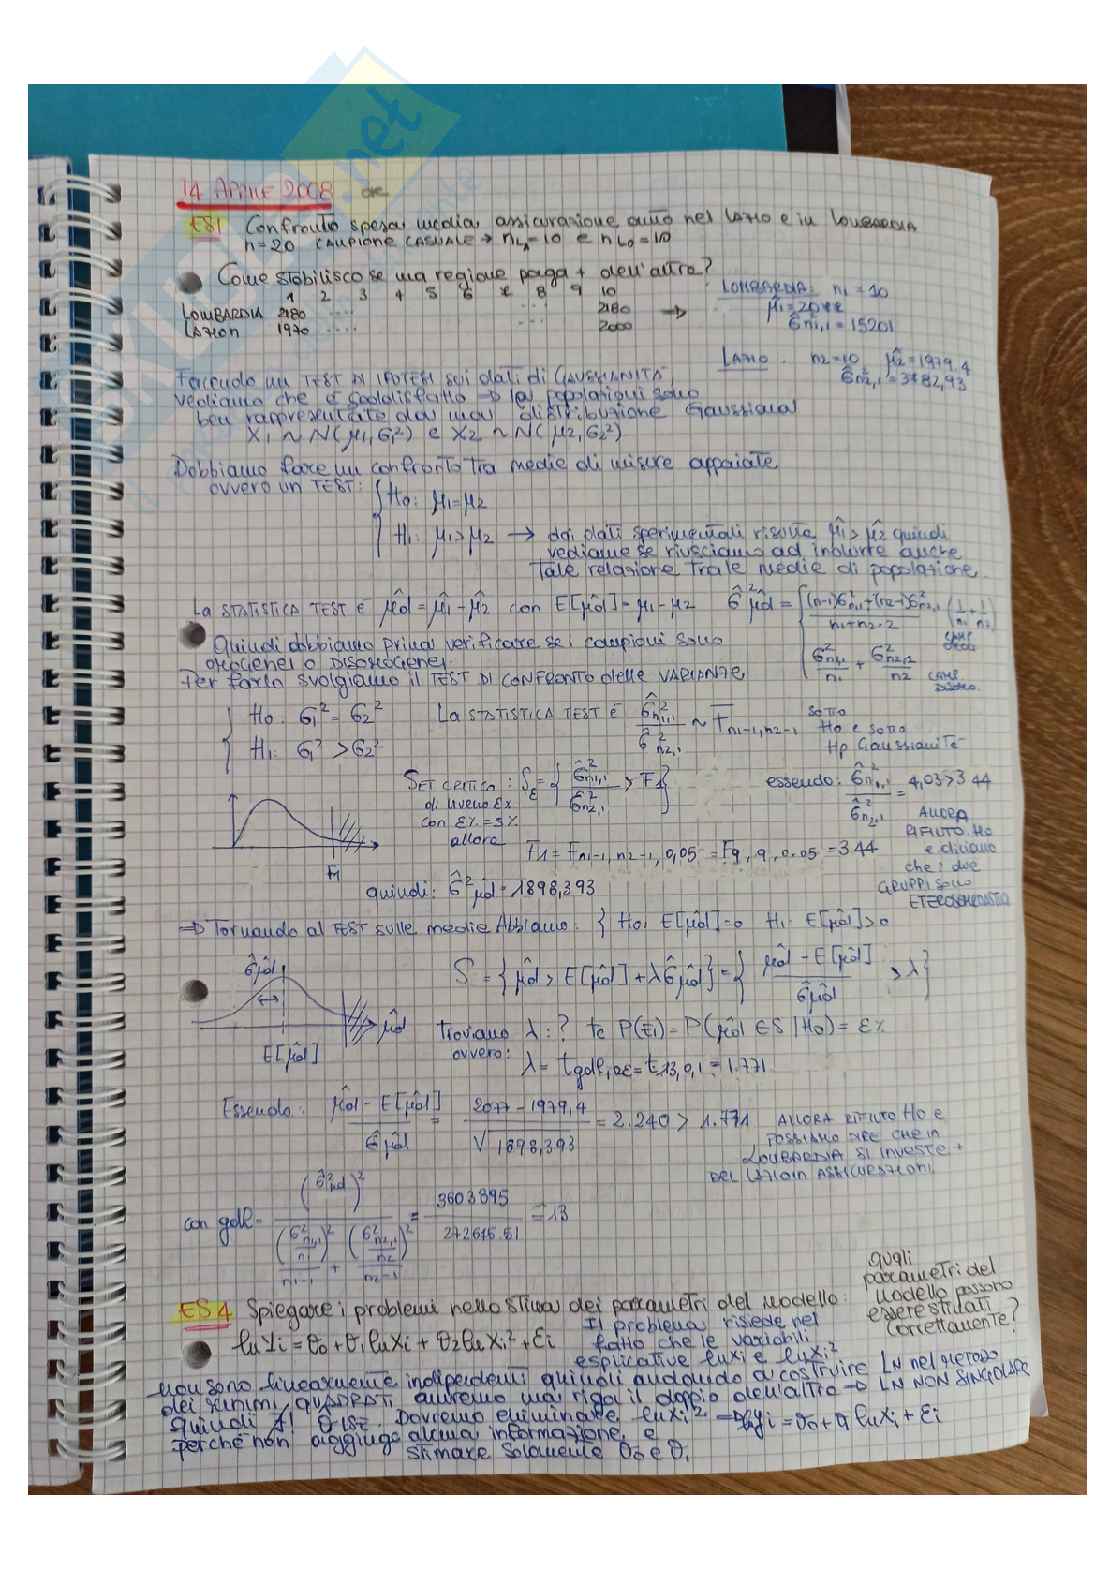 14 APRILE 2008
ES1 Confronto spesa media assicurazione auto nel LAZIO e in LOMBARDIA
n=20 CAMPIONE CASUALE → nLA=10 e nLO=10
Come stabilisco se una regione paga + dell'altra?
1 2 3 4 5 6 7 8 9 10
LOMBARDIA 2180 ..... ... 2180
LAZIO 1970 ..... ... 2000 →
LOMBARDIA: n1=10
μ̂1=2077
σ̂²n1,1=15201
LAZIO n2=10 μ̂2=1979.4
σ̂²n2,1=3782,93
Facendo un TEST DI IPOTESI sui dati di GAUSSIANITÀ
vediamo che è soddisfatto → le popolazioni sono
ben rappresentate da una distribuzione Gaussiana
X1 ~ N(μ1,σ1²) e X2 ~ N(μ2,σ2²)
Dobbiamo fare un confronto tra medie di misure appaiate
ovvero un TEST: { H0: μ1=μ2
H1: μ1>μ2 → dai dati sperimentali risulta μ̂1>μ̂2 quindi
vediamo se riusciamo ad indurre anche
tale relazione tra le medie di popolazione.
La STATISTICA TEST è μ̂d=μ̂1-μ̂2 con E[μ̂d]=μ1-μ2 σ̂²μ̂d = { (n1-1)σ̂²n1,1+(n2-1)σ̂²n2,1 / n1+n2-2 (1/n1 + 1/n2)
CAMP
Quindi dobbiamo prima verificare se i campioni sono
OMOGENEI o DISOMOGENEI.
σ̂²n1,1/n1 + σ̂²n2,1/n2 CAMP. DISOMO.
Per farlo svolgiamo il TEST DI CONFRONTO delle VARIANZE
{ H0: σ1²=σ2²
H1: σ1²>σ2²
La STATISTICA TEST è σ̂²n1,1/σ̂²n2,1 ~ Fn1-1,n2-1 SOTTO
H0 e sotto
Hp Gaussianità
SET CRITICO: Sε={σ̂²n1,1/σ̂²n2,1 > F1}
di livello ε%
con ε%=5%
allora
F1=Fn1-1,n2-1,0,05=F9,9,0.05=3.44
essendo: σ̂²n1,1/σ̂²n2,1=4,03>3.44
ALLORA
RIFIUTO H0
e diciamo
che i due
GRUPPI SONO
ETEROSCHEDASTICI
F1
quindi: σ̂²μ̂d=1898,393
⇒ Tornando al TEST sulle medie Abbiamo: { H0: E[μ̂d]=0 H1: E[μ̂d]>0
σ̂μ̂d
S={μ̂d>E[μ̂d]+λσ̂μ̂d}={μ̂d-E[μ̂d]/σ̂μ̂d > λ}
μ̂d
E[μ̂d]
troviamo λ:? tc P(E1)=P(μ̂d∈S|H0)=ε%
ovvero: λ=tgdl,2ε=t13,0,1=1.771
Essendo: μ̂d-E[μ̂d]/σ̂μ̂d = 2077-1979,4/√1898,393 = 2.240 > 1.771 ALLORA RIFIUTO H0 e
POSSIAMO DIRE CHE in
LOMBARDIA SI INVESTE +
DEL LAZIO in ASSICURAZIONI
con gdl= (σ̂²μ̂d)² / (σ̂²n1,1/n1)²/n1-1 + (σ̂²n2,1/n2)²/n2-1 = 3603895/272615.81 = 13
ES4 Spiegare i problemi nella stima dei parametri del modello:
quali
parametri del
modello possono
essere stimati
correttamente?
ln Yi = θ0+θ1 ln xi + θ2 ln xi² + εi
Il problema risiede nel
fatto che le variabili
esplicative ln xi e ln xi²
non sono linearmente indipendenti quindi andando a costruire LN nel METODO
dei MINIMI QUADRATI avremo una riga il doppio dell'altra → LN NON SINGOLARE
Quindi ∄! θ̂LSE. Dovremo eliminare ln xi² → ln yi=θ0+θ1 ln xi+εi
perchè non aggiunge alcuna informazione e
stimare solamente θ0 e θ1